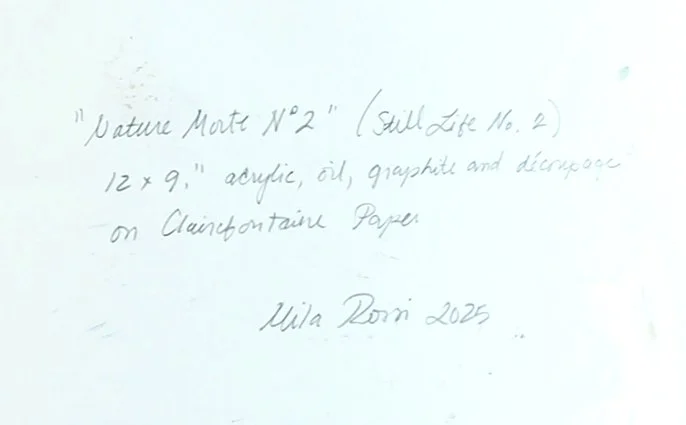 "Nature Morte N°2" (Still Life No. 2)
12 x 9." acrylic, oil, graphite and découpage
on Clairefontaine Paper
Mila Rossi 2025